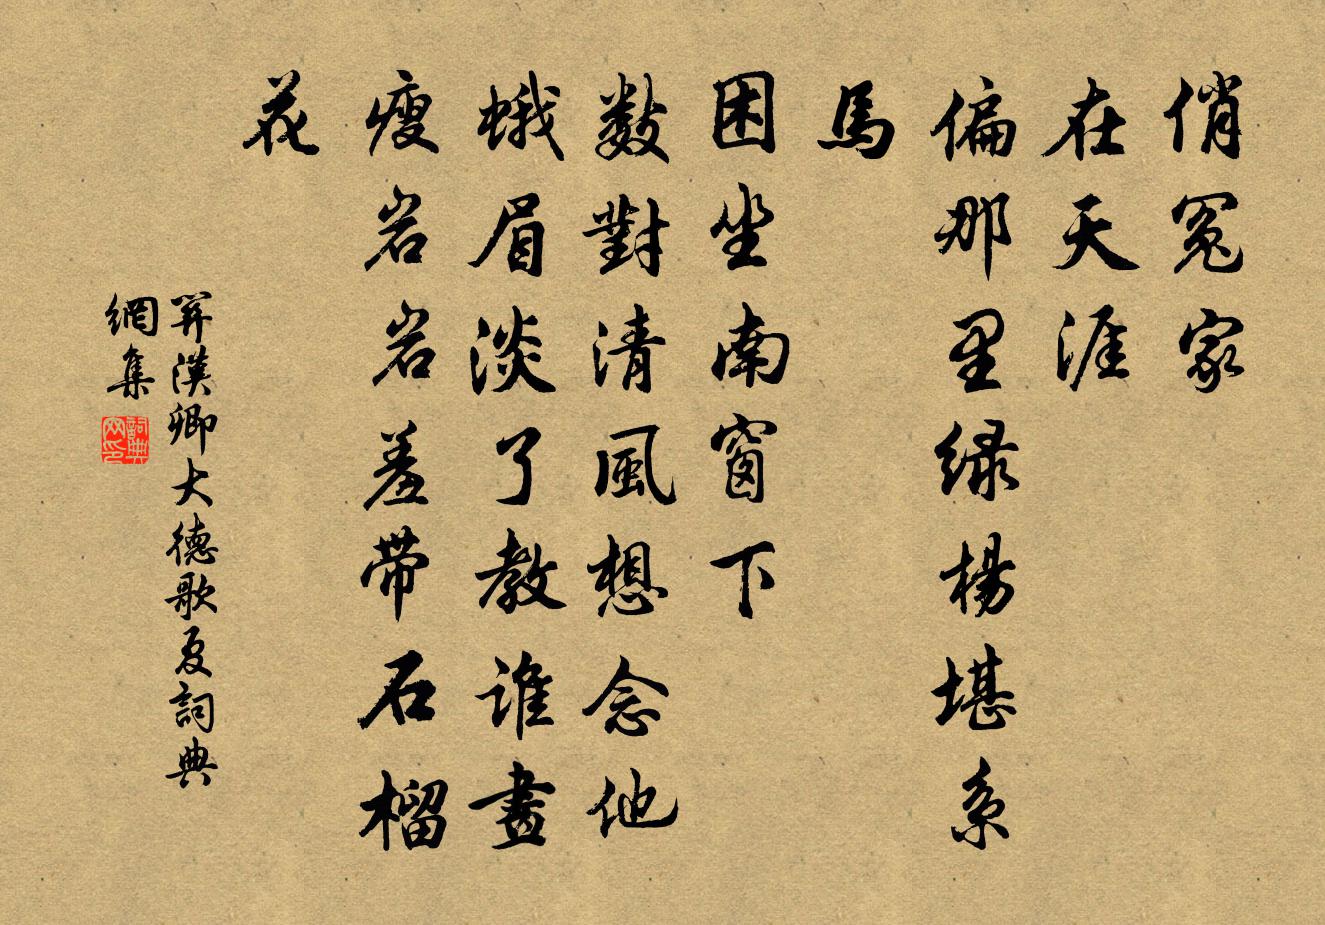 俏冤家
在天涯
偏那里綠楊堪系
馬
困坐南窗下
數對清風想念他
蛾眉淡了教誰畫
瘦岩岩羞带石榴
花
關漢卿大德歌夏詞典
網集
詞典
网印